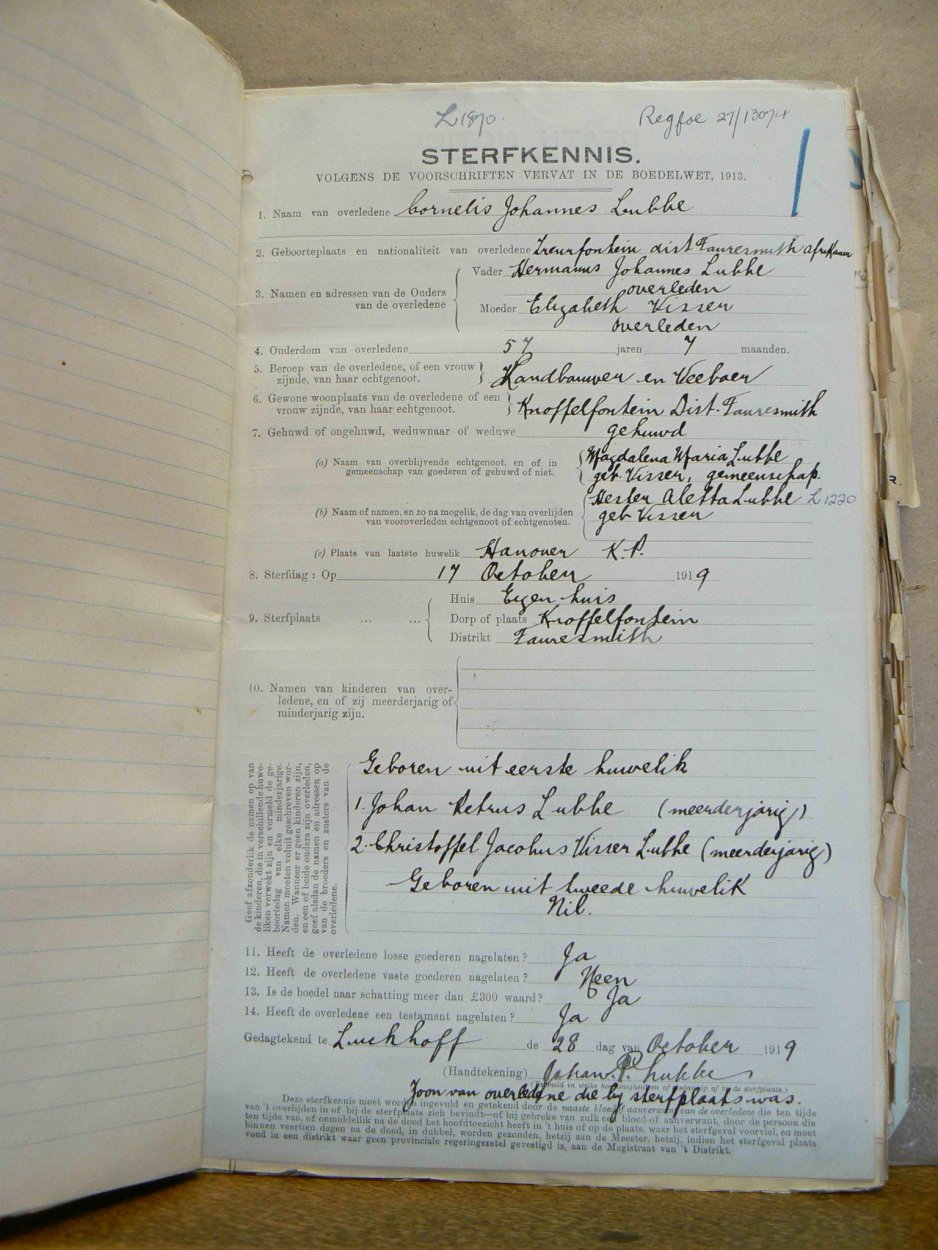 L 1870.
Regfoe 27/13074
STERFKENNIS.
VOLGENS DE VOORSCHRIFTEN VERVAT IN DE BOEDELWET, 1913.
1. Naam van overledene Cornelis Johannes Lubbe
2. Geboorteplaats en nationaliteit van overledene Treurfontein dist Fauresmith Afrikaner
3. Namen en adressen van de Ouders van de overledene
Vader Hermanus Johannes Lubbe
overleden
Moeder Elizabeth Visser
overleden
4. Onderdom van overledene 57 jaren 7 maanden.
5. Beroep van de overledene, of een vrouw
zijnde, van haar echtgenoot.
Landbouwer en Veeboer
6. Gewone woonplaats van de overledene of een
vrouw zijnde, van haar echtgenoot.
Knoffelfontein Dist. Fauresmith
7. Gehuwd of ongehuwd, weduwnaar of weduwe gehuwd
(a) Naam van overblijvende echtgenoot, en of in
gemeenschap van goederen of gehuwd of niet.
Magdalena Maria Lubbe
geb. Visser, gemeenschap.
(b) Naam of namen, en zo na mogelik, de dag van overlijden
van vooroverleden echtgenoot of echtgenoten.
Hester Aletta Lubbe L 1220
geb Visser
(c) Plaats van laatste huwelik Hanover K.P.
8. Sterfdag: Op 17 October 1919
9. Sterfplaats ... ...
Huis Eigen huis
Dorp of plaats Knoffelfontein
Distrikt Fauresmith
10. Namen van kinderen van over-
ledene, en of zij meerderjarig of
minderjarig zijn.
Geef afzonderlik de namen op van
de kinderen, die in verschillende huwe-
liken verwekt zijn en vermeld de ge-
boortedag van elke minderjarige.
Namen moeten voluit geschreven wor-
den. Wanneer er geen kinderen zijn,
en een of beide ouders zijn overleden,
geef alsdan de namen en adressen op
van de broeders en zusters van de
overledene.
Geboren uit eerste huwelik
1. Johan Petrus Lubbe (meerderjarig)
2. Christoffel Jacobus Visser Lubbe (meerderjarig)
Geboren uit tweede huwelik
Nil.
11. Heeft de overledene losse goederen nagelaten? Ja
12. Heeft de overledene vaste goederen nagelaten? Neen
13. Is de boedel naar schatting meer dan £300 waard? Ja
14. Heeft de overledene een testament nagelaten? Ja
Gedagtekend te Luckhoff de 28 dag van October 1919
(Handtekening) Johan. P. Lubbe
Zoon van overledene die by sterfplaats was.
Deze sterfkennis moet worden ingevuld en getekend door de naaste bloed- of aanverwant van de overledene die ten tijde
van 't overlijden in of bij de sterfplaats zich bevindt—of bij gebreke van zulk een bloed-of aanverwant, door de persoon die
ten tijde van, of onmiddellik na de dood het hoofdtoezicht heeft in 't huis of op de plaats, waar het sterfgeval voorviel, en moet
binnen veertien dagen na de dood, in dubbel, worden gezonden, hetzij aan de Meester, hetzij, indien het sterfgeval plaats
vond in een distrikt waar geen provinciale regeringszetel gevestigd is, aan de Magistraat van 't Distrikt.